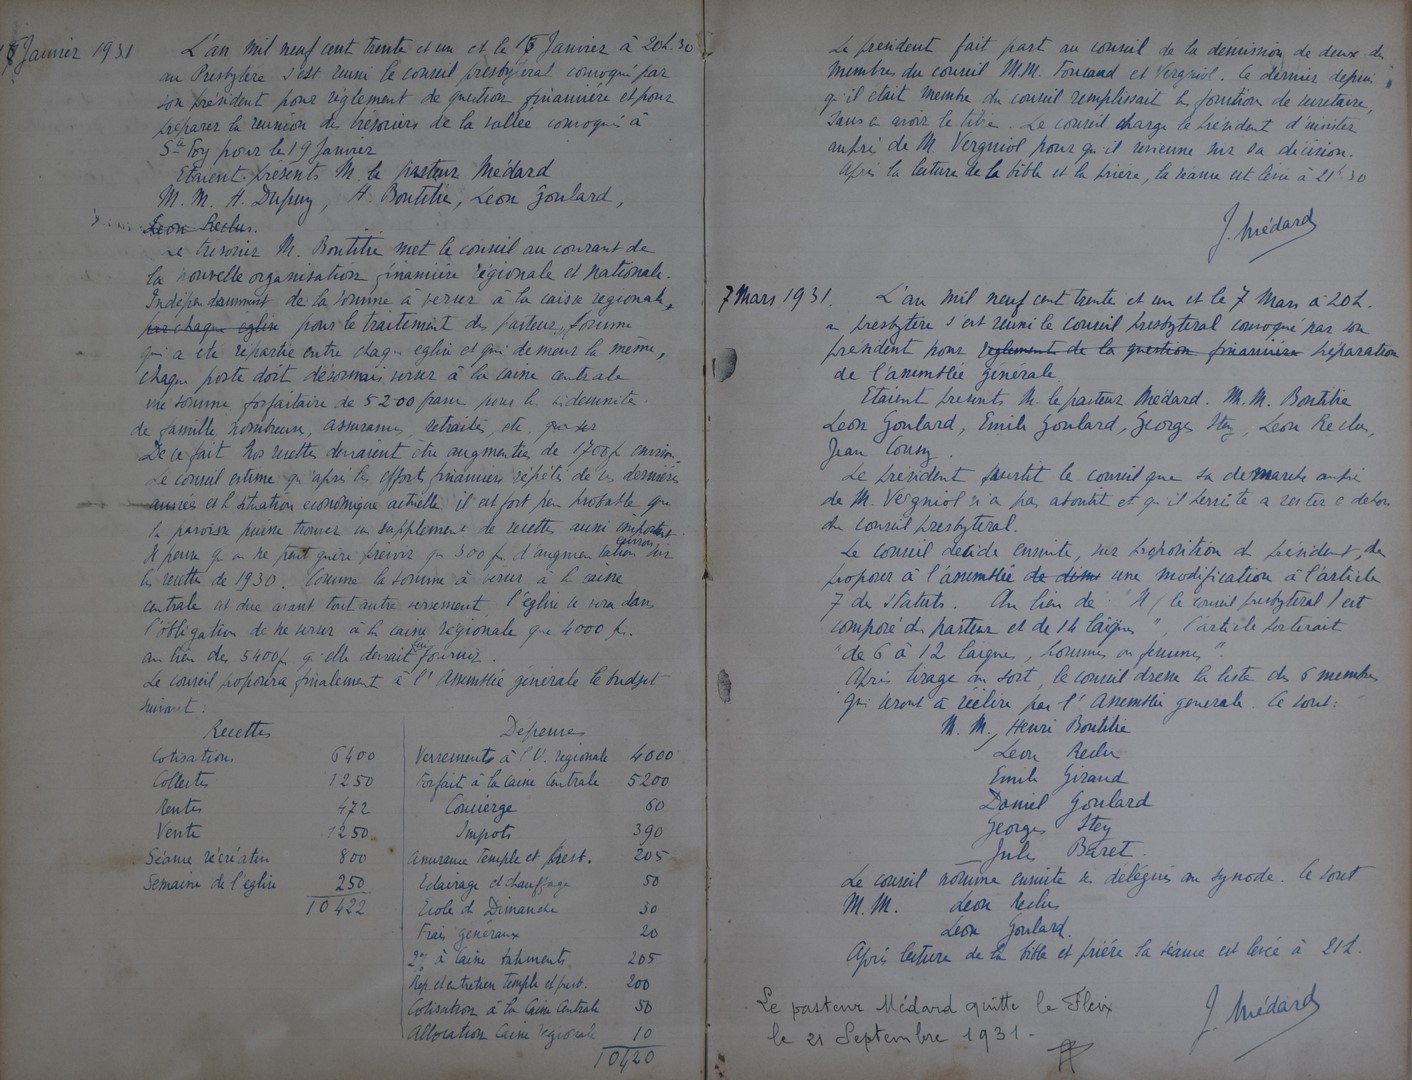 15 Janvier 1931
L'an mil neuf cent trente et un et le 15 Janvier à 20h.30
au Presbytère s'est réuni le conseil presbyteral convoqué par
son président pour règlement de question financière et pour
préparer la reunion des trésoriers de la vallée convoqués à
Ste Foy pour le 19 Janvier
Etaient présents M. le pasteur Médard
M.M. H. Dupuy, H. Boutitie, Leon Goulard,
Leon Reclus.
Le trésorier M. Boutitie met le conseil au courant de
la nouvelle organisation financière régionale et nationale.
Indépendamment de la somme à verser à la caisse regionale,
par chaque église pour le traitement des pasteurs, somme
qui a été répartie entre chaque eglise et qui demeure la même,
chaque poste doit désormais verser à la caisse centrale
une somme forfaitaire de 5200 francs pour les indemnités
de famille nombreuse, assurances, retraites, etc.
De ce fait nos recettes devraient être augmentées de 1700f environ
Le conseil estime qu'après les efforts financiers répétés de ces dernières
années et la situation economique actuelle il est fort peu probable que
la paroisse puisse trouver un supplément de recettes aussi important.
Il pense qu'on ne peut guère prévoir que 300 f. d'augmentation environ sur
les recettes de 1930. Comme la somme à verser à la caisse
centrale est due avant tout autre versement, l'église se verra dans
l'obligation de ne verser à la caisse régionale que 4000 f.
au lieu des 5400f qu'elle devrait lui fournir.
Le conseil proposera finalement à l'Assemblée générale le budget
suivant :
Recettes
Cotisations 6400
Collectes 1250
Rentes 472
Vente 1250
Séance récréative 800
Semaine de l'église 250
10422
Depenses
Versements à l'U. régionale 4000
Forfait à la caisse Centrale 5200
Concierge 60
Impots 390
Assurance temple et presb. 205
Eclairage et chauffage 50
Ecole du Dimanche 30
Frais généraux 20
2% à Caisse batiments 205
Rep. et entretien temple et presb. 200
Cotisation à la Caisse Centrale 50
Allocation Caisse regionale 10
10420
Le president fait part au conseil de la démission de deux des
membres du conseil MM. Foucaud et Vergniol. Ce dernier depuis
qu'il etait membre du conseil remplissait la fonction de secretaire,
sans en avoir le titre. Le conseil charge le président d'insister
auprès de M. Vergniol pour qu'il revienne sur sa décision.
Après la lecture de la bible et la prière, la séance est levée à 21h30
J. Médard
7 Mars 1931. L'an mil neuf cent trente et un et le 7 Mars à 20h.
au presbytère s'est réuni le conseil presbyteral convoqué par son
président pour reglement de la question financière préparation
de l'assemblée générale
Etaient présents M. le pasteur Médard. M.M. Boutitie
Leon Goulard, Emile Goulard, Georges Stey, Leon Reclus,
Jean Cousy.
Le président avertit le conseil que sa démarche auprès
de M. Vergniol n'a pas abouti et qu'il persiste a rester en dehors
du conseil presbyteral.
Le conseil décide ensuite, sur proposition du président, de
proposer à l'assemblée de dim une modification à l'article
7 des statuts. Au lieu de : "Il (le conseil presbyteral) est
composé du pasteur et de 14 laïques", l'article porterait
"de 6 à 12 laïques, hommes ou femmes"
Après tirage au sort, le conseil dresse la liste des 6 membres
qui seront à réélire par l'Assemblée generale. Ce sont :
M.M. Henri Boutitie
Leon Reclus
Emile Giraud
Daniel Goulard
Georges Stey
Jules Baret.
Le conseil nomme ensuite ses délégués au synode. Ce sont
M.M. Leon Reclus
Léon Goulard.
Après lecture de la bible et prière la séance est levée à 21h.
J. Médard
Le pasteur Médard quitte le Fleix
le 21 Septembre 1931 -